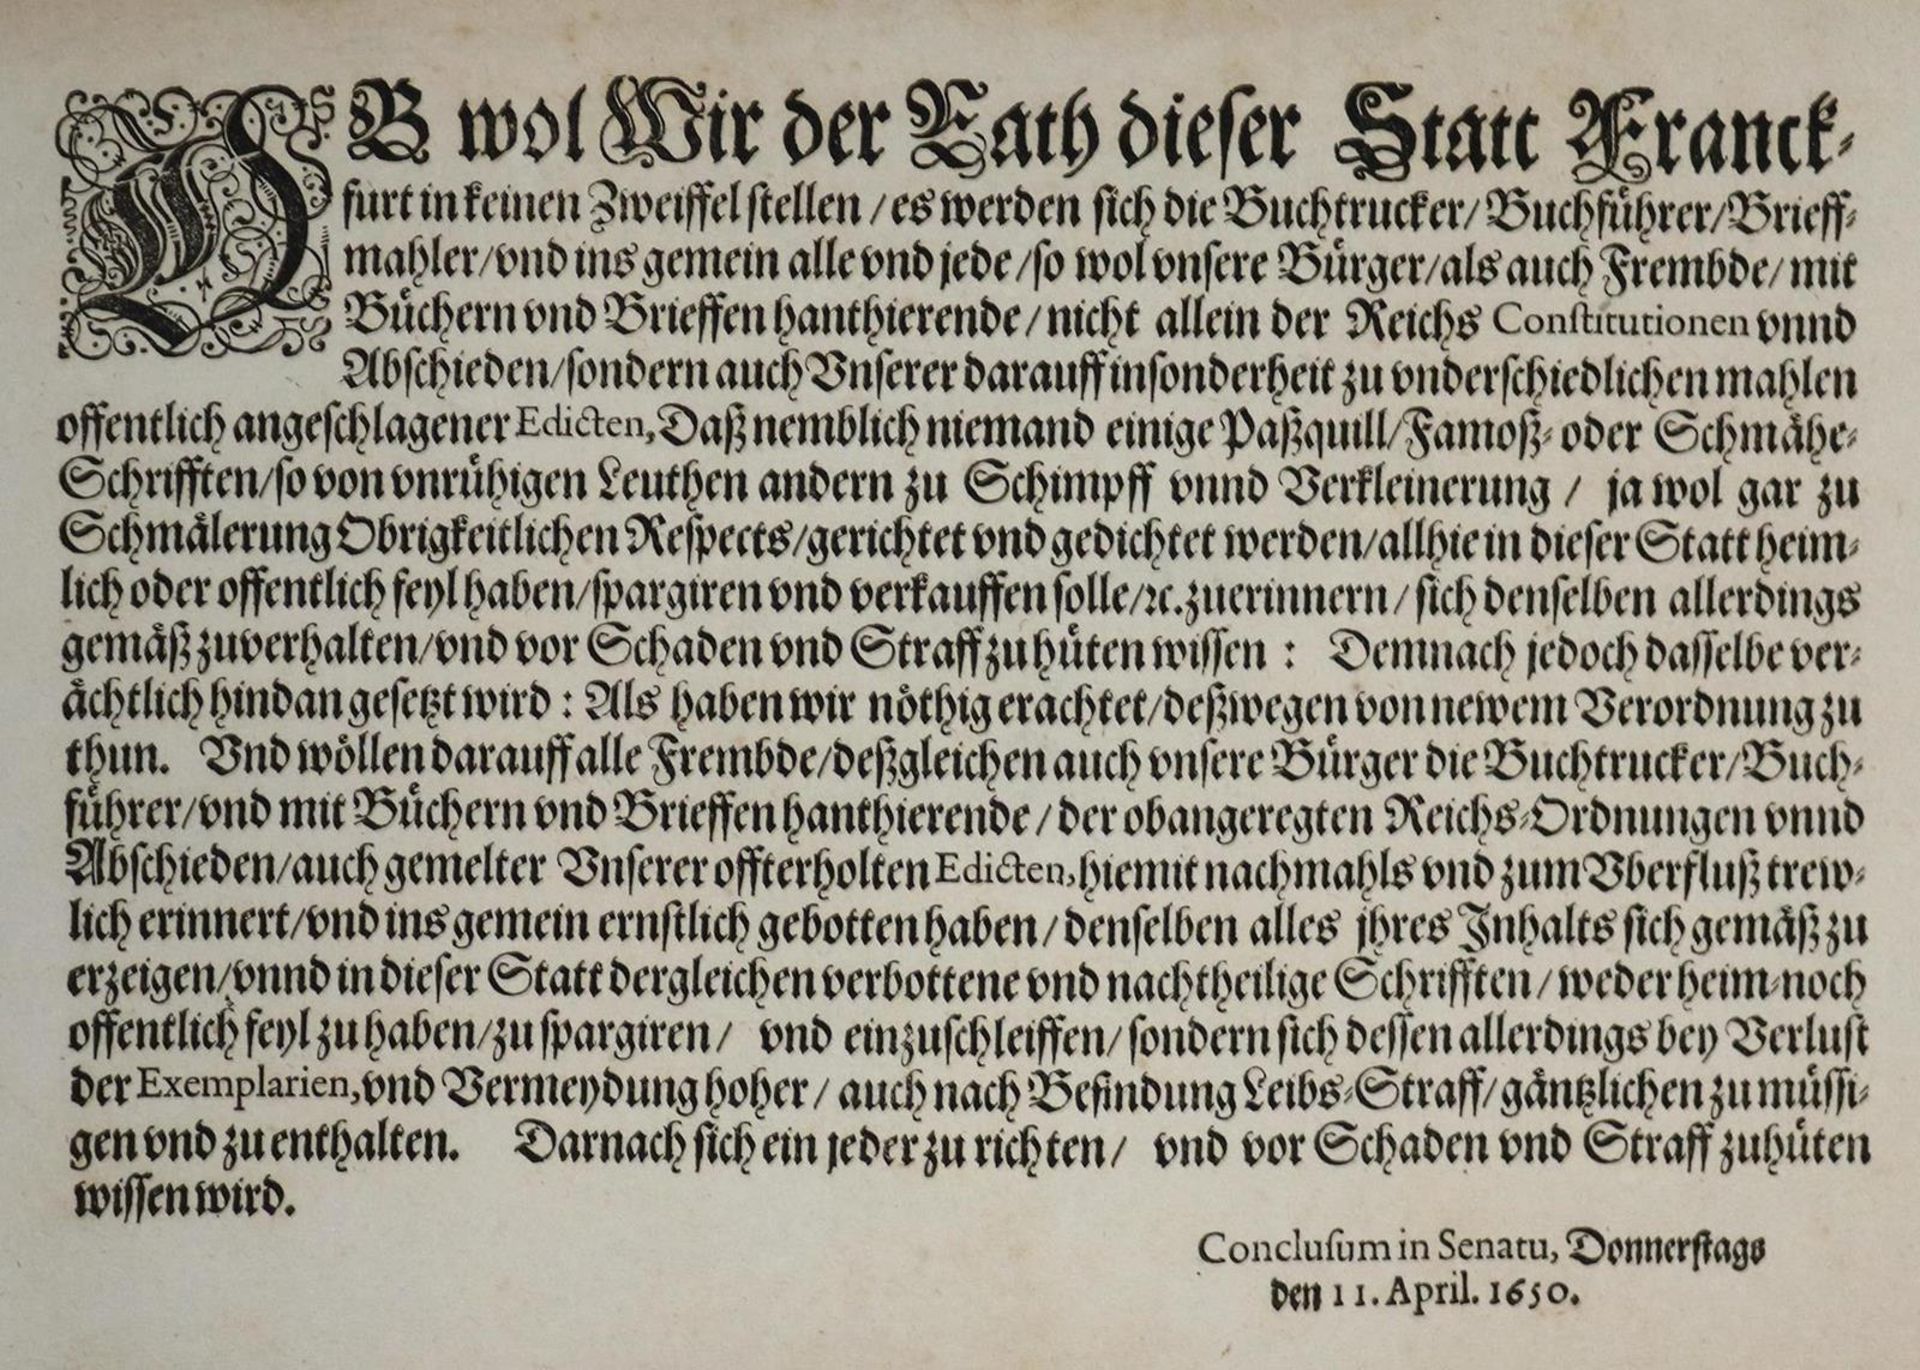 OB wol Wir der Rath dieser Statt Franck-
furt in keinen Zweiffel stellen / es werden sich die Buchtrucker / Buchführer / Brieff-
mahler / vnd ins gemein alle vnd jede / so wol vnsere Bürger / als auch Frembde / mit
Büchern vnd Brieffen hanthierende / nicht allein der Reichs Constitutionen vnnd
Abschieden / sondern auch Vnserer darauff insonderheit zu vnderschiedlichen mahlen
offentlich angeschlagener Edicten, Daß nemblich niemand einige Paßquill / Famoß- oder Schmähe-
Schrifften / so von vnrühigen Leuthen andern zu Schimpff vnnd Verkleinerung / ja wol gar zu
Schmälerung Obrigkeitlichen Respects / gerichtet vnd gedichtet werden / allhie in dieser Statt heim-
lich oder offentlich feyl haben / spargiren vnd verkauffen solle / ꝛc. zuerinnern / sich denselben allerdings
gemäß zuverhalten / vnd vor Schaden vnd Straff zu hüten wissen : Demnach jedoch dasselbe ver-
ächtlich hindan gesetzt wird : Als haben wir nöthig erachtet / deßwegen von newem Verordnung zu
thun. Vnd wöllen darauff alle Frembde / deßgleichen auch vnsere Bürger die Buchtrucker / Buch-
führer / vnd mit Büchern vnd Brieffen hanthierende / der obangeregten Reichs-Ordnungen vnnd
Abschieden / auch gemelter Vnserer offterholten Edicten, hiemit nachmahls vnd zum Vberfluß trew-
lich erinnert / vnd ins gemein ernstlich gebotten haben / denselben alles jhres Inhalts sich gemäß zu
erzeigen / vnnd in dieser Statt dergleichen verbottene vnd nachtheilige Schrifften / weder heim-noch
offentlich feyl zu haben / zu spargiren / vnd einzuschleiffen / sondern sich dessen allerdings bey Verlust
der Exemplarien, vnd Vermeydung hoher / auch nach Befindung Leibs-Straff / gäntzlichen zu müssi-
gen vnd zu enthalten. Darnach sich ein jeder zu richten / vnd vor Schaden vnd Straff zuhüten
wissen wird.
Conclusum in Senatu, Donnerstags
den 11. April. 1650.